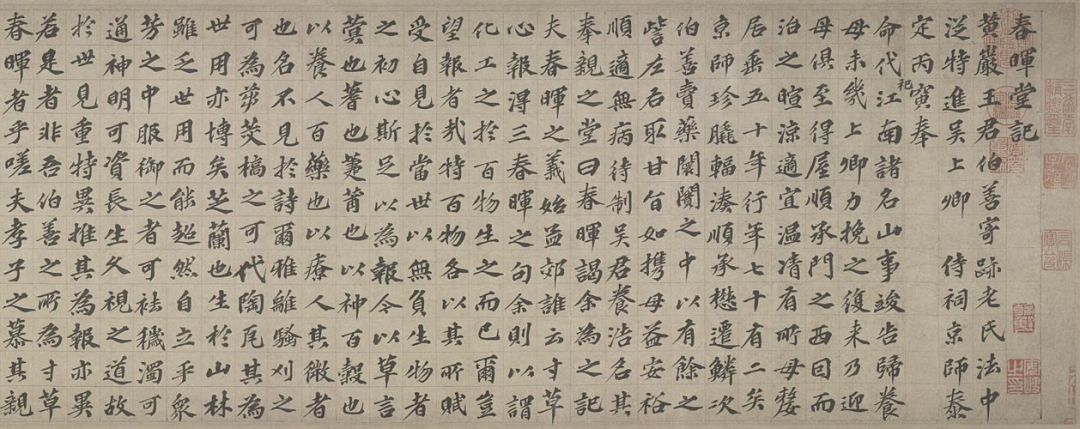 春暉堂記
黃巖王君伯善寄跡老氏法中
從特進吳上卿 侍祠京師泰
定丙寅奉
命代祀江南諸名山事竣告歸養
母未幾上卿力挽之復来乃迎
母俱至得屋順承門之西因而
治之暄涼適宜溫凊有所母嫠
居垂五十年行年七十有二矣
京師珍膬輻湊順承懋遷鱗次
伯善賣藥闤闠之中以有餘之
訾左右取甘旨如携母益安裕
順適無病待制吳君養浩名其
奉親之堂曰春暉謁余為之記
夫春暉之義始孟郊誰云寸草
心報得三春暉之句余則以謂
化工之於百物生之而已爾豈
望報者哉特百物各以其所賦
受自見於當世以無負生物者
之初心斯足以為報今以草言
蓂也蓍也萐莆也以神百穀也
以養人百藥也以療人其微者
也名不見於詩爾雅離騷刈之
可為芻茭槁之可代陶瓦其為
世用亦博矣芝蘭也生於山林
雖乏世用而能超然自立乎衆
芳之中服御之者可袪穢濁可
通神明可資長生久視之道故
於世見重特異推其為報亦異
若是者非吾伯善之所為寸草
春暉者乎嗟夫孝子之慕其親